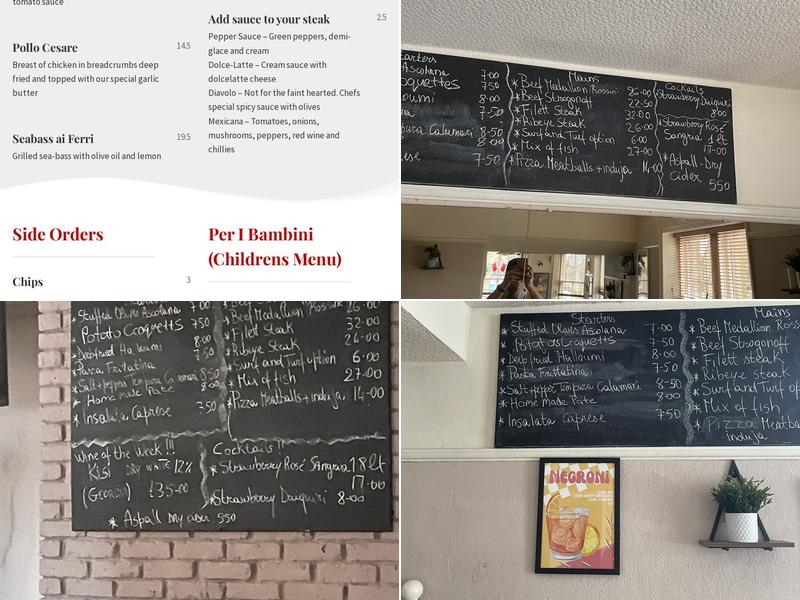 tomato sauce
Pollo Cesare 14.5
Breast of chicken in breadcrumbs deep
fried and topped with our special garlic
butter
Seabass ai Ferri 19.5
Grilled sea-bass with olive oil and lemon
Add sauce to your steak 2.5
Pepper Sauce – Green peppers, demi-
glace and cream
Dolce-Latte – Cream sauce with
dolcelatte cheese
Diavolo – Not for the faint hearted. Chefs
special spicy sauce with olives
Mexicana – Tomatoes, onions,
mushrooms, peppers, red wine and
chillies
Side Orders
Chips 3
Per I Bambini
(Childrens Menu)
Ascolana 7.00
oquettes 7.50
oumi 8.00
7.50
pura Calamari 8.50
8.00
7.50
Mains
* Beef Medallion Rossini 26.00
* Beef Strogonoff 22.50
* Fillett Steak 32.00
* Ribeye Steak 26.00
* Surf and Turf option 6.00
* Mix of fish 27.00
* Pizza Meatballs + induja 14.00
Cocktails
* Strawberry Daiquiri
8.00
* Strawberry Rosé
Sangria 1 lt
17.00
* Aspall Dry
Cider
550
* Stuffed Olives Ascolana 7.00
* Potato Croquetts 7.50
* Deep fried Halloumi 8.00
Pasta Frittatina 7.50
* Salt + pepper Tempura Calamari 8.50
* Home made Pate 8.00
* Insalata Caprese 7.50
* Beef Medallion Rossini 26.00
* Beef Strogonoff
* Fillett Steak 32.00
* Ribeye Steak 26.00
* Surf and Turf option 6.00
* Mix of fish 27.00
* Pizza Meatballs + induja 14.00
Wine of the week !!!
Kisi Dry White 12%
(Georgia) £35.00
Cocktails!!
* Strawberry Rosé Sangria 1 lt
17.00
* Strawberry Daiquiri 8.00
* Aspall Dry cider 550
Starters
* Stuffed Olives Ascolana 7.00
* Potato Croquetts 7.50
* Deep fried Halloumi 8.00
* Pasta Frittatina 7.50
* Salt + pepper Tempura Calamari 8.50
* Home made Pate 8.00
* Insalata Caprese 7.50
Mains
* Beef Medallion Ross
* Beef Strogonoff
* Fillett steak
* Ribeye steak
* Surf and Turf op
* Mix of fish
* Pizza Meatba
induja
NEGRONI